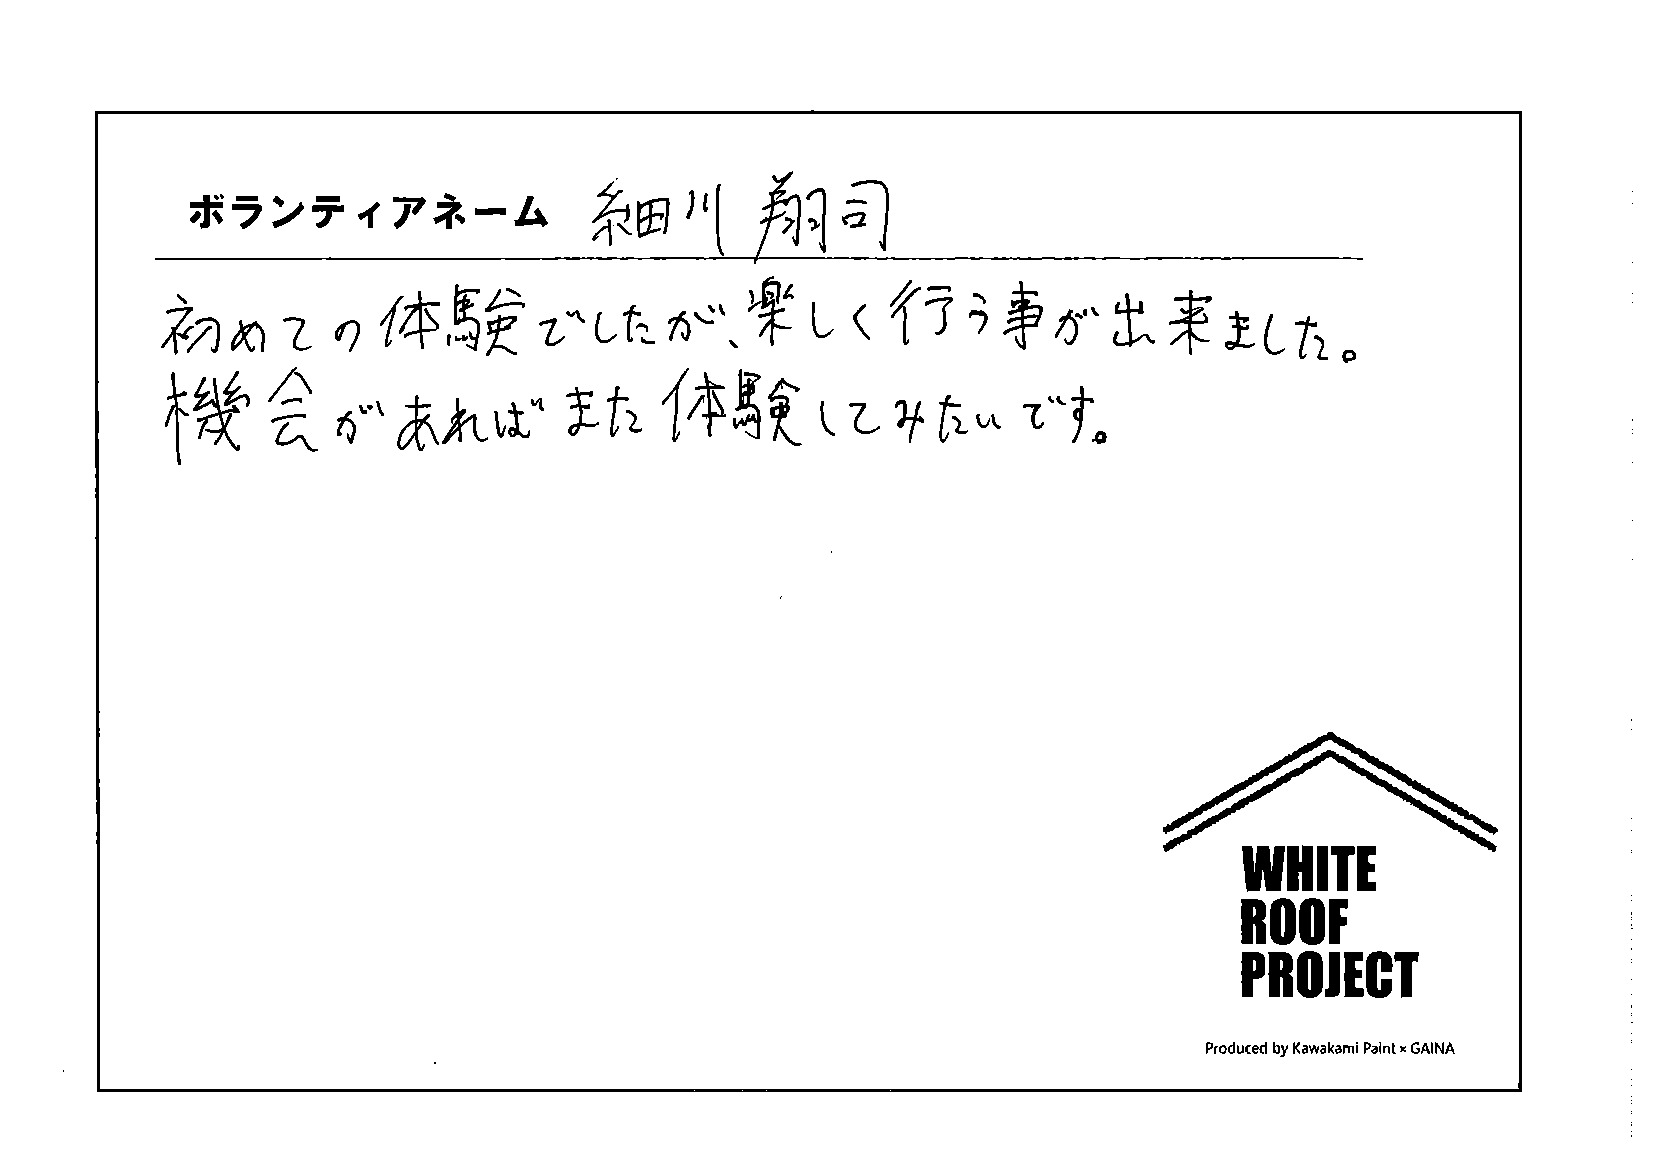 ボランティアネーム 細川 翔司
初めての体験でしたが、楽しく行う事が出来ました。
機会があればまた体験してみたいです。
WHITE
ROOF
PROJECT
Produced by Kawakami Paint × GAINA